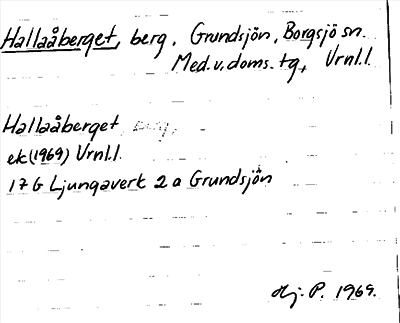 Hallaåberget, berg. Grundsjön, Borgsjö sn.
Med. v. doms. tg, Vrnl.l.
Hallaåberget
ek (1969) Vrnl.l.
17 G Ljungaverk 2 a Grundsjön
Hj. P. 1969.